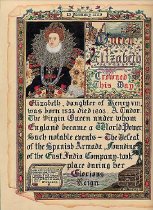 15 January 1559
Queen
Elizabeth
Crowned
This Day
Elizabeth, daughter of Henry VIII,
was born 1533 died 1603. A Tudor.
The Virgin Queen under whom
England became a World Power.
Such notable events - The defeat
of the Spanish Armada, Founding
of the East India Company, took
place during her
Glorious
Reign.